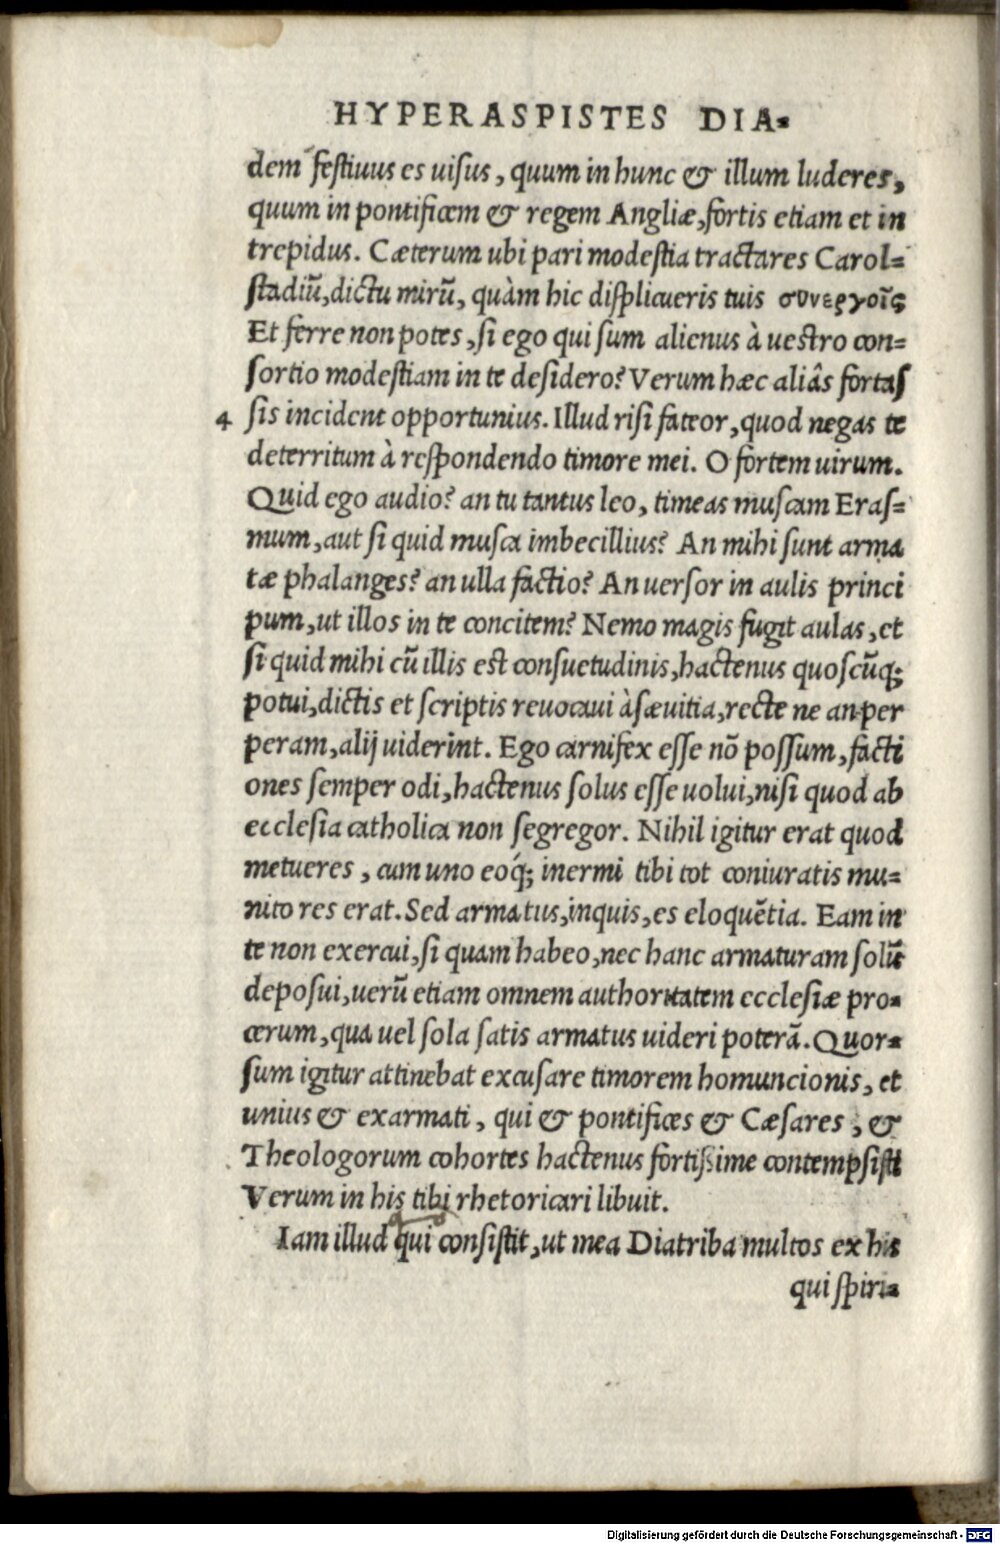 HYPERASPISTES DIA-
dem festiuus es uisus, quum in hunc & illum luderes,
quum in pontificem & regem Angliæ, fortis etiam et in
trepidus. Cæterum ubi pari modestia tractares Carol=
stadiũ, dictu mirũ, quàm hic displicueris tuis συνεργοῖς
Et ferre non potes, si ego qui sum alienus à uestro con=
sortio modestiam in te desidero? Verum hæc aliâs fortas
4 sis incident opportunius. Illud risi fateor, quod negas te
deterritum à respondendo timore mei. O fortem uirum.
Quid ego audio? an tu tantus leo, timeas muscam Eras=
mum, aut si quid musca imbecillius? An mihi sunt arma
tæ phalanges? an ulla factio? An uersor in aulis princi
pum, ut illos in te concitem? Nemo magis fugit aulas, et
si quid mihi cũ illis est consuetudinis, hactenus quoscũq;
potui, dictis et scriptis reuocaui à sæuitia, recte ne an per
peram, alij uiderint. Ego carnifex esse nõ possum, facti
ones semper odi, hactenus solus esse uolui, nisi quod ab
ecclesia catholica non segregor. Nihil igitur erat quod
metueres, cum uno eoq́; inermi tibi tot coniuratis mu=
nito res erat. Sed armatus, inquis, es eloquẽtia. Eam in
te non exercui, si quam habeo, nec hanc armaturam solũ
deposui, uerũ etiam omnem authoritatem ecclesiæ pro-
cerum, qua uel sola satis armatus uideri poterã. Quor-
sum igitur attinebat excusare timorem homuncionis, et
unius & exarmati, qui & pontifices & Cæsares, &
Theologorum cohortes hactenus fortissime contempsisti
Verum in his tibi rhetoricari libuit.
Iam illud qui consistit, ut mea Diatriba multos ex his
qui spiri-
Digitalisierung gefördert durch die Deutsche Forschungsgemeinschaft - DFG